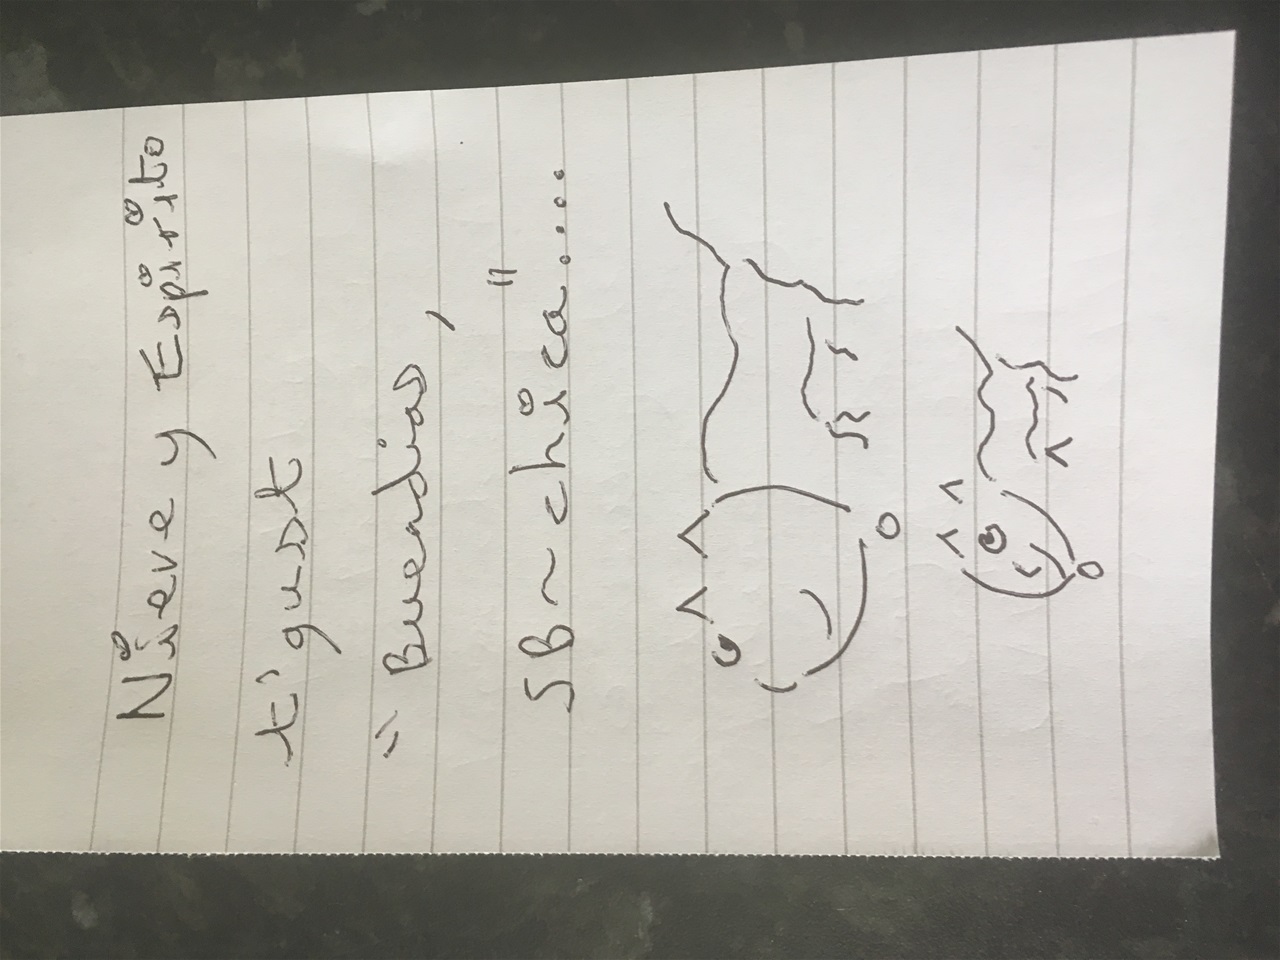 Nieve y Espirito
t'gust
"Buendias,
SB~chica"....